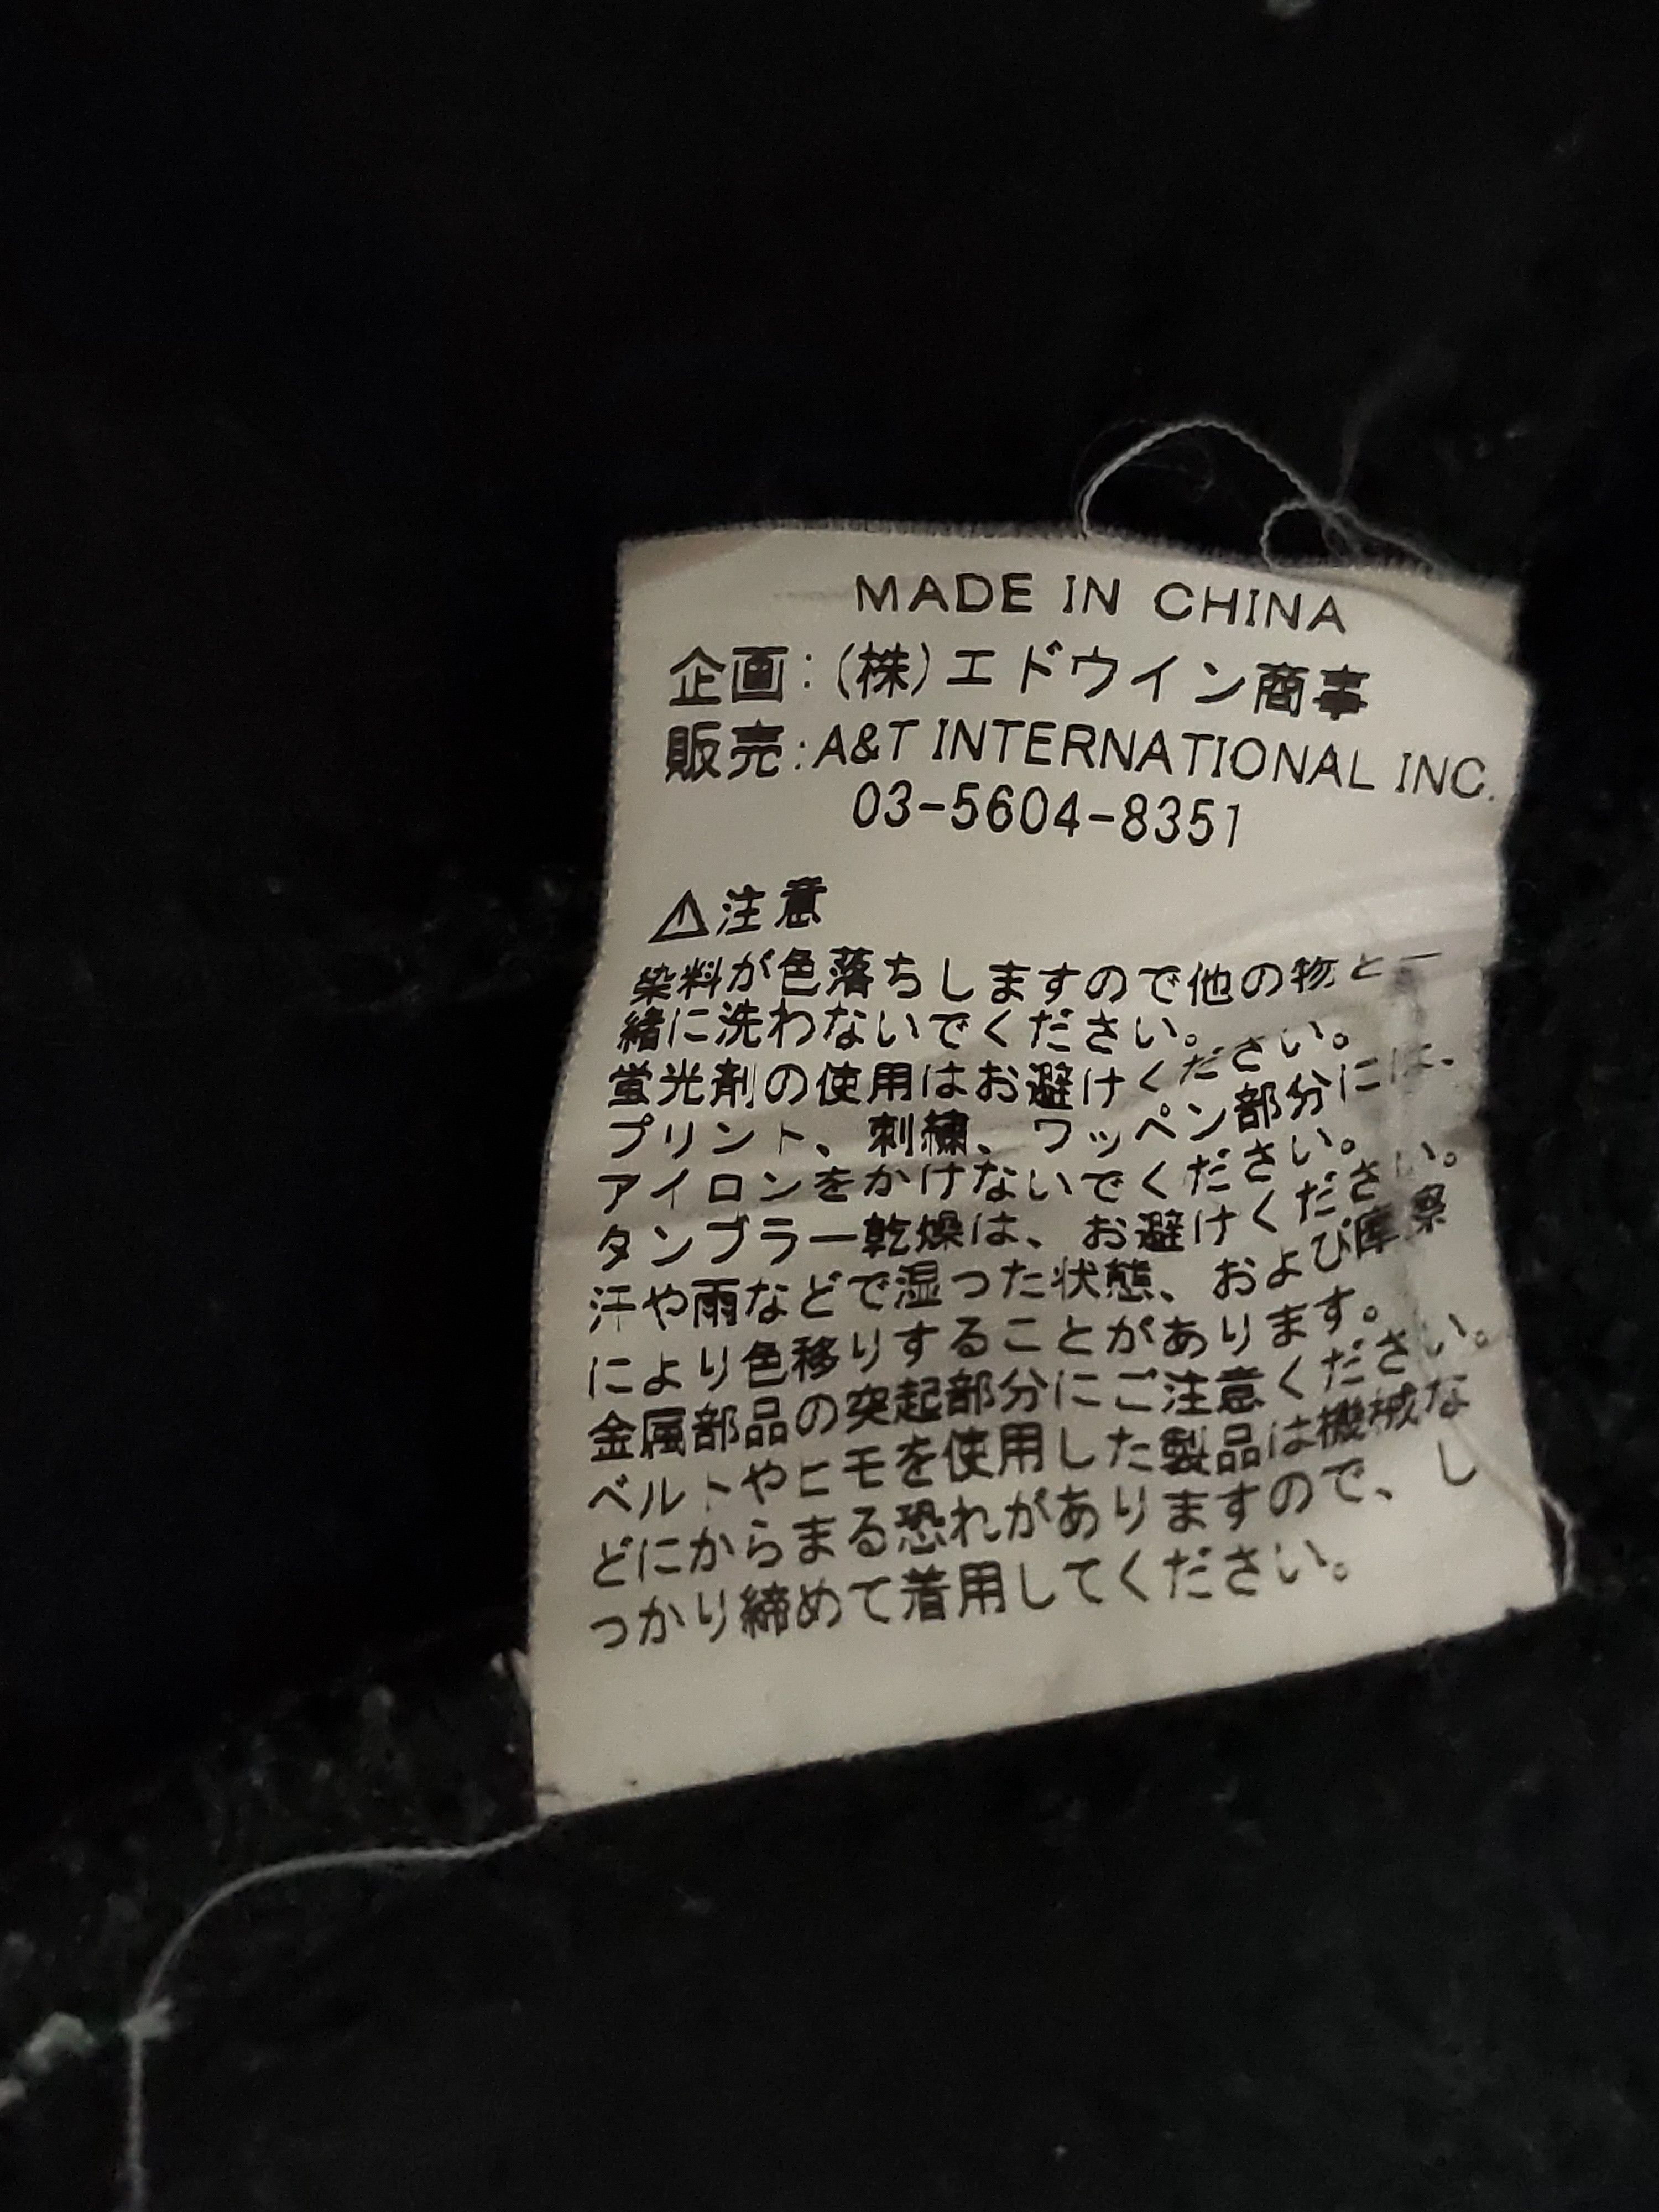 MADE IN CHINA
企画:(株)エドウイン商事
販売:A&T INTERNATIONAL INC.
03-5604-8351
⚠注意
染料が色落ちしますので他の物と一
緒に洗わないでください。
蛍光剤の使用はお避けください。
プリント、刺繍、ワッペン部分には、
アイロンをかけないでください。
タンブラー乾燥は、お避けください。
汗や雨などで湿った状態、および摩擦
により色移りすることがあります。
金属部品の突起部分にご注意ください。
ベルトやヒモを使用した製品は機械な
どにからまる恐れがありますので、し
っかり締めて着用してください。